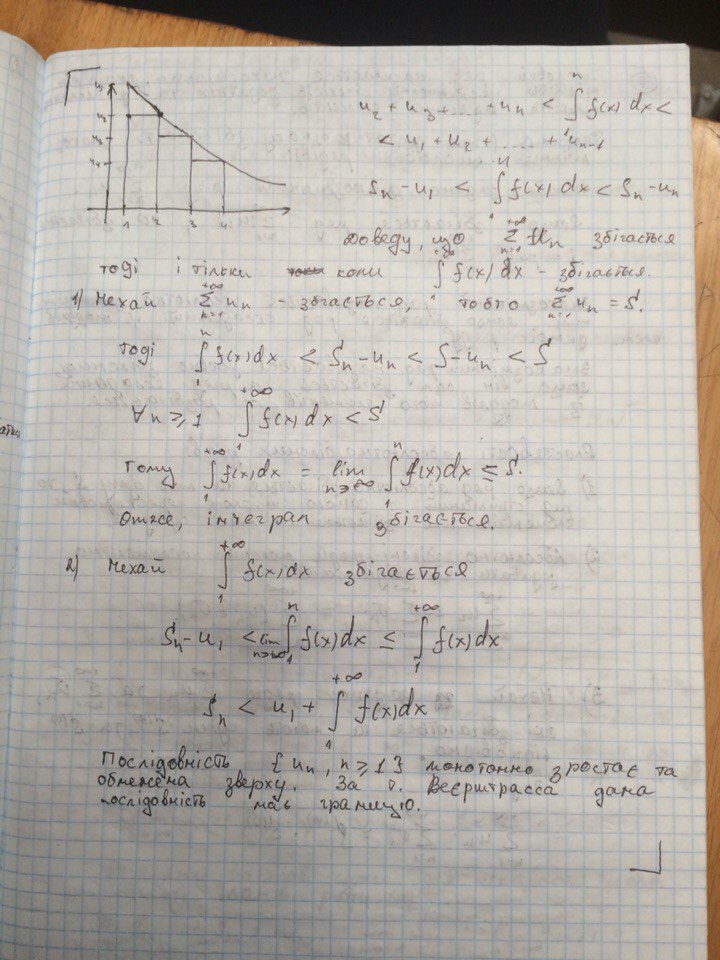 u₁
u₂
u₃
u₄
1 2 3 4
u₂ + u₃ + .... + uₙ < ∫₁ⁿ f(x) dx <
< u₁ + u₂ + ..... + uₙ₋₁
Sₙ - u₁ < ∫₁ⁿ f(x) dx < Sₙ - uₙ
Доведу, що ∑ₙ₌₁^{+∞} uₙ збігається
тоді і тільки коли ∫₁^{+∞} f(x) dx - збігається.
1) Нехай ∑ₙ₌₁^{+∞} uₙ - збігається, тобто ∑ₙ₌₁^{+∞} uₙ = S.
тоді ∫₁ⁿ f(x)dx < Sₙ - uₙ < S - uₙ < S
∀n ≥ 1 ∫₁^{+∞} f(x) dx < S
Тому ∫₁^{+∞} f(x)dx = lim_{n→∞} ∫₁ⁿ f(x)dx ≤ S.
Отже, інтеграл збігається.
2) Нехай ∫₁^{+∞} f(x)dx збігається
Sₙ - u₁ < lim_{n→∞} ∫₁ⁿ f(x)dx ≤ ∫₁^{+∞} f(x)dx
Sₙ < u₁ + ∫₁^{+∞} f(x)dx
Послідовність {uₙ, n ≥ 1} монотонно зростає та
обмежена зверху. За т. Веєрштрасса дана
послідовність має границю.